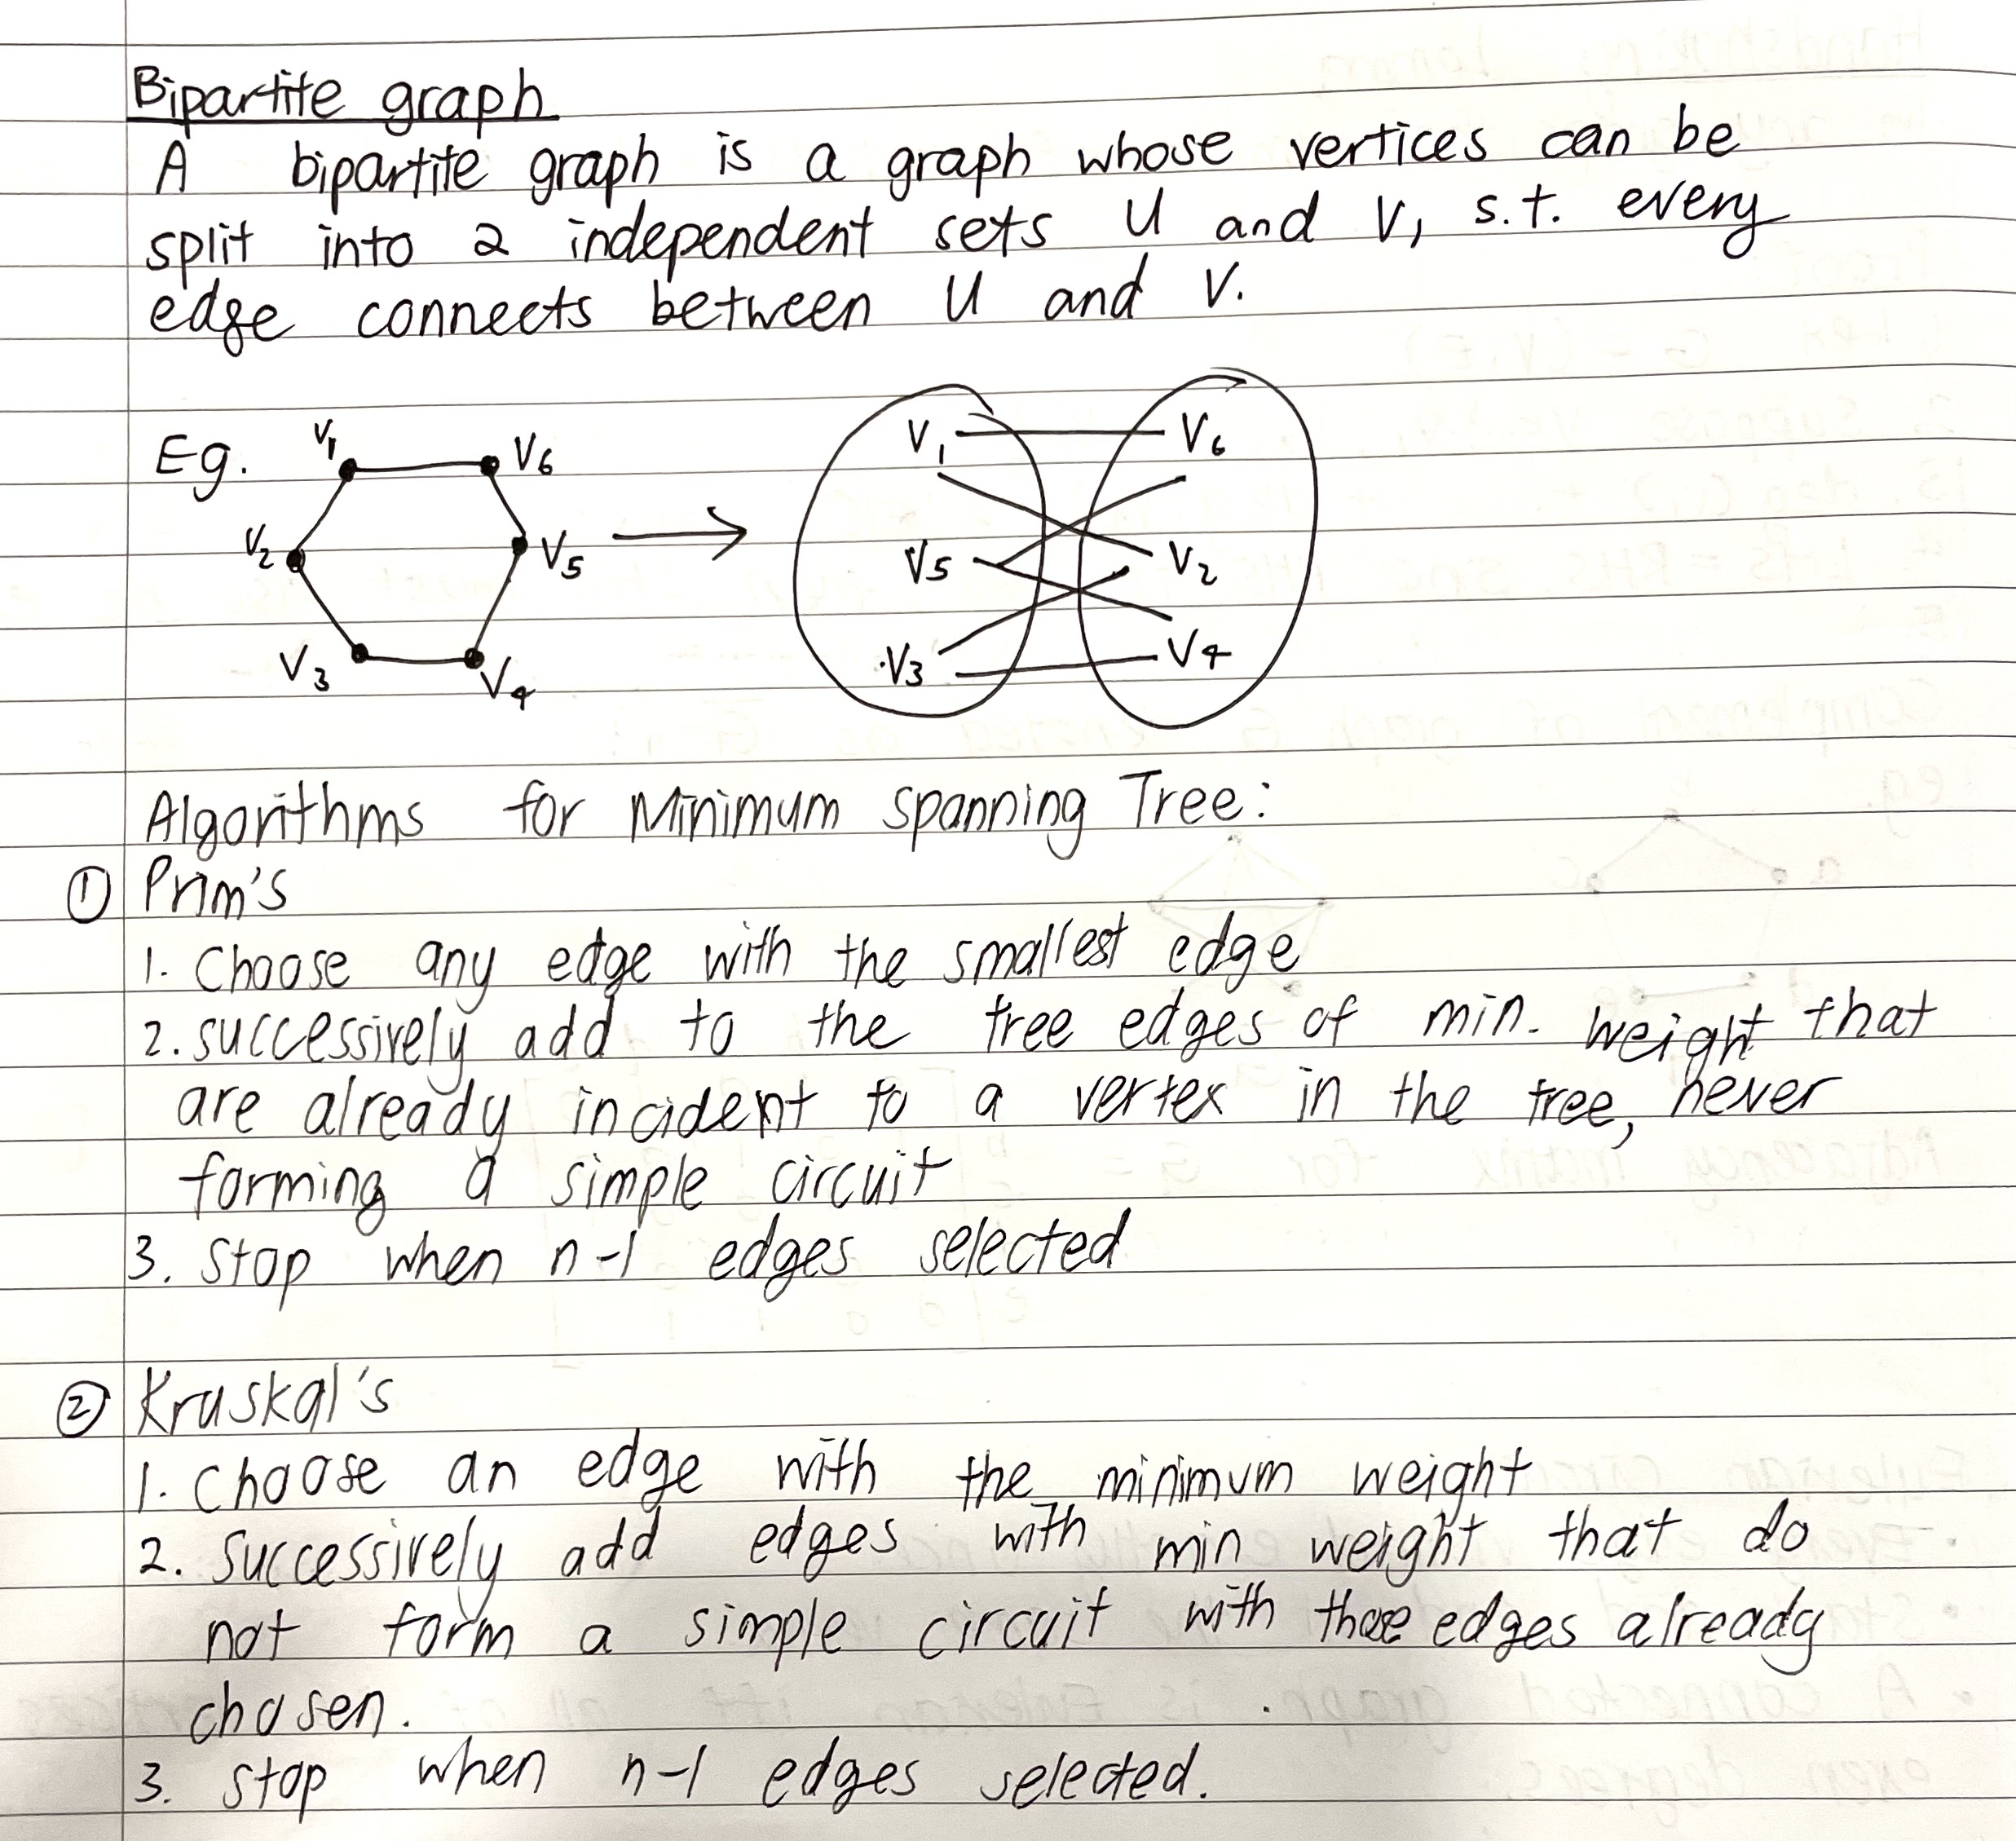 Bipartite graph
A bipartite graph is a graph whose vertices can be
split into 2 independent sets U and V, s.t. every
edge connects between U and V.
Eg.
V1 V6
V2 V5
V3 V4
V1 V6
V5 V2
V3 V4
Algorithms for Minimum Spanning Tree:
① Prim's
1. Choose any edge with the smallest edge
2. successively add to the tree edges of min. weight that
are already incident to a vertex in the tree, never
forming a simple circuit
3. Stop when n-1 edges selected
② Kruskal's
1. Choose an edge with the minimum weight
2. Successively add edges with min weight that do
not form a simple circuit with those edges already
chosen.
3. Stop when n-1 edges selected.